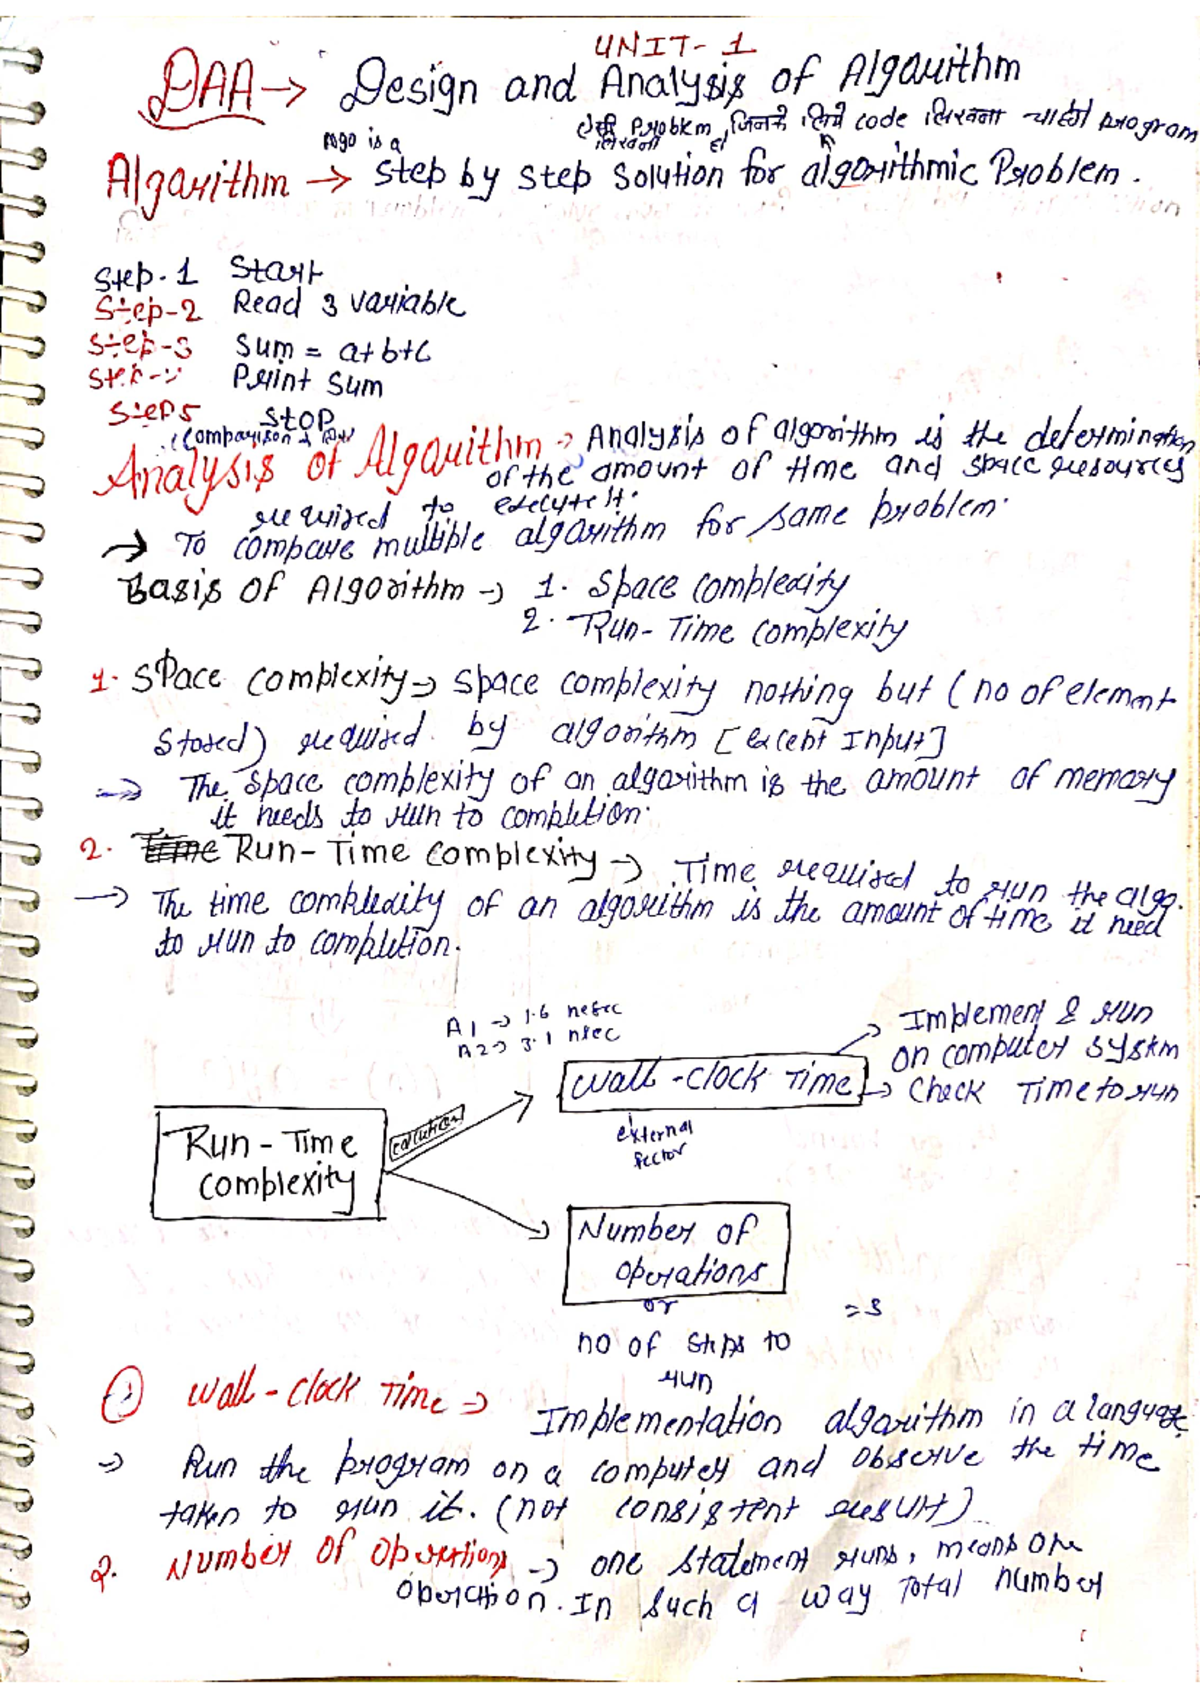 UNIT- 1
DAA → Design and Analysis of Algorithm
ऐसी problem जिनके लिये code लिखना चाहो program
लिखनी हो
algo is a
Algorithm → Step by Step Solution for algorithmic Problem.
Step-1 Start
Step-2 Read 3 variable
Step-3 Sum = a+b+c
Print Sum
Step 5 STOP
(Comparison
Analysis of Algorithm → Analysis of algorithm is the determination
of the amount of time and space resources
required to execute it.
→ To compare multiple algorithm for same problem.
Basis of Algorithm → 1. Space Complexity
2. Run-Time Complexity
1. Space Complexity → Space complexity nothing but (no of element
stored) required by algorithm [except Input]
→ The space complexity of an algorithm is the amount of memory
it needs to run to completion.
2. Time Run-Time Complexity → Time required to run the algo.
→ The time complexity of an algorithm is the amount of time it need
to run to completion.
A1 → 1.6 nsec
A2 → 3.1 nsec
→ Implement & run
on computer system
Wall-clock Time → Check Time to run
external
fector
Run-Time
complexity
Number of
operations
or
=3
no of steps to
run
1 Wall-Clock Time → Implementation algorithm in a language
→ Run the program on a computer and observe the time
taken to run it. (not consistent result)
2. Number of Operations → one statement runs, means one
operation. In such a way total number